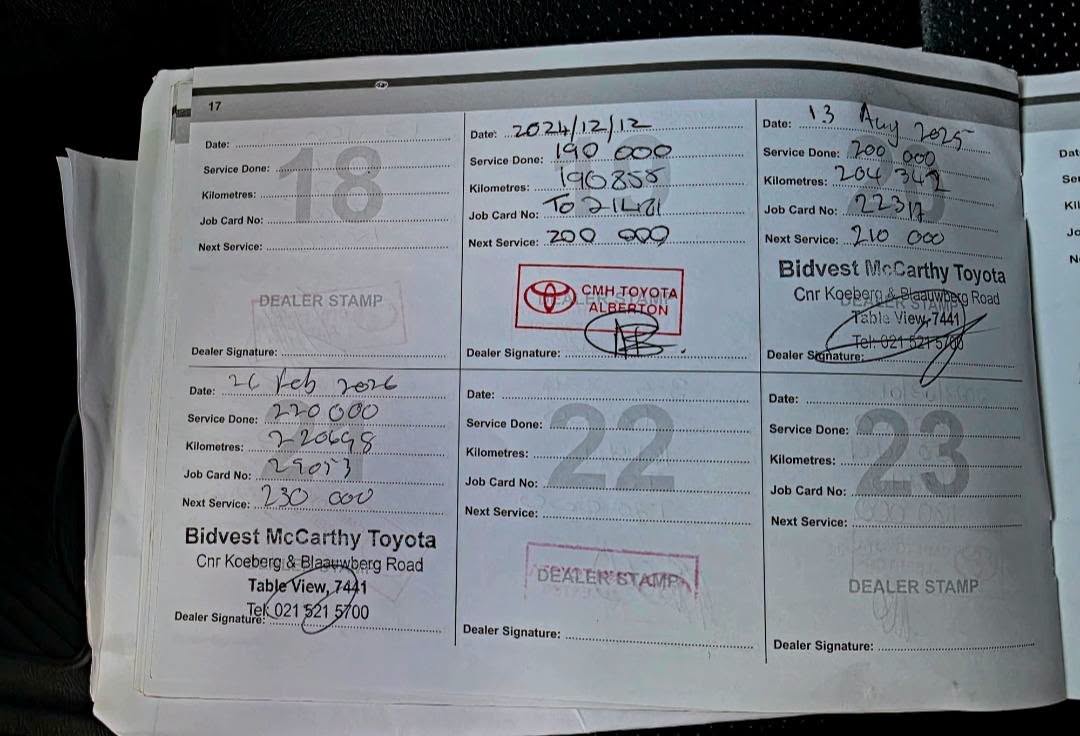 17
18
Date:
Service Done:
Kilometres:
Job Card No:
Next Service:
DEALER STAMP
Dealer Signature:
Date: 2024/12/12
Service Done: 190 000
Kilometres: 190855
Job Card No:
Next Service: 200 000
DEALER STAMP
CMH TOYOTA
ALBERTON
Dealer Signature:
Date: 13 Aug 2025
Service Done: 200 000
Kilometres: 204 342
Job Card No: 22317
Next Service: 210 000
Bidvest McCarthy Toyota
Cnr Koeberg & Blaauwberg Road
DEALER STAMP
Table View, 7441
Tel: 021 521 5700
Dealer Signature:
Date: 26 Feb 2026
Service Done: 220 000
Kilometres: 220698
Job Card No: 29053
Next Service: 230 000
Bidvest McCarthy Toyota
Cnr Koeberg & Blaauwberg Road
Table View, 7441
Tel: 021 521 5700
Dealer Signature:
22
Date:
Service Done:
Kilometres:
Job Card No:
Next Service:
DEALER STAMP
Dealer Signature:
23
Date:
Service Done:
Kilometres:
Job Card No:
Next Service:
DEALER STAMP
Dealer Signature: